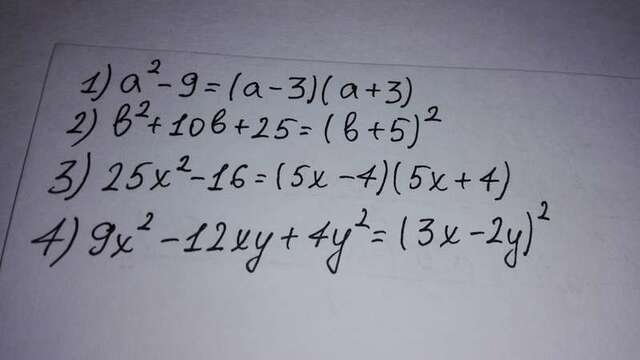 1) a² - 9 = (a - 3)(a + 3)
2) b² + 10b + 25 = (b + 5)²
3) 25x² - 16 = (5x - 4)(5x + 4)
4) 9x² - 12xy + 4y² = (3x - 2y)²